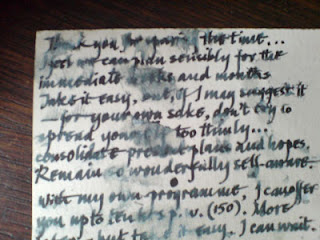 Thank you for sparing the time...
I feel we can plan sensibly for the
immediate weeks and months
Take it easy, but, if I may suggest it
— for your own sake, don't try to
spread yourself too thinly...
consolidate present plans and hopes.
Remain so wonderfully self-aware.
With my own programme, I can offer
you up to ten hrs p.w. (150). More
later but take it easy. I can wait.